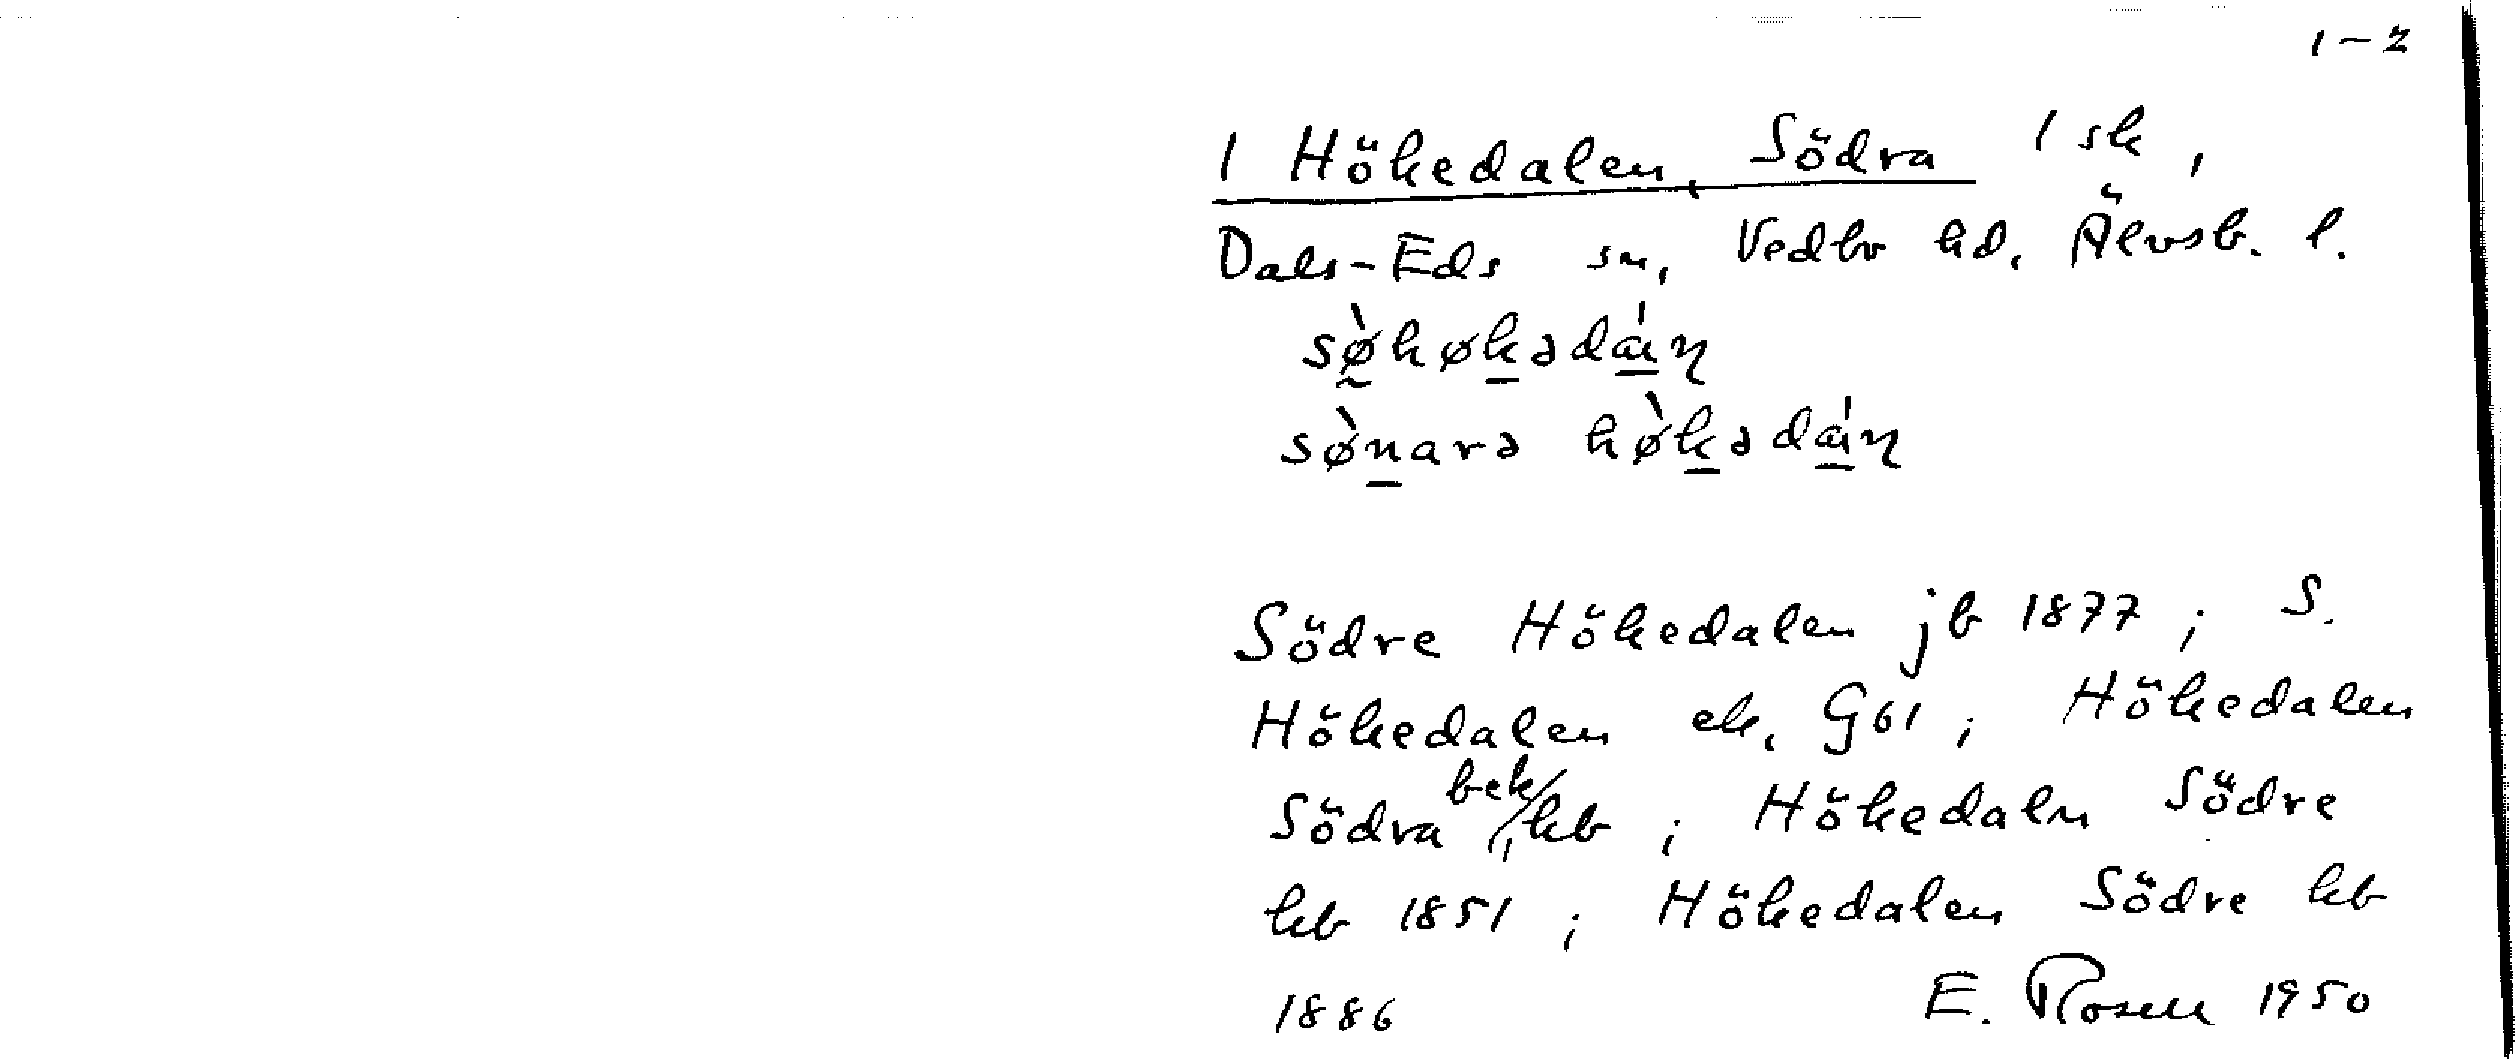 1-2
1 Hökedalen, Södra 1 sk,
Dals-Eds sn, Vedbo hd, Älvsb. l.
sø̀høkədá̲n
sø̀n̲arə hø̀k̲ədá̲n
Södre Hökedalen jb 1877; S.
Hökedalen ek. G61; Hökedalen
Södra bek, kb; Hökedaln Södre
kb 1851; Hökedalen Södre kb
1886 E. Rosell 1950